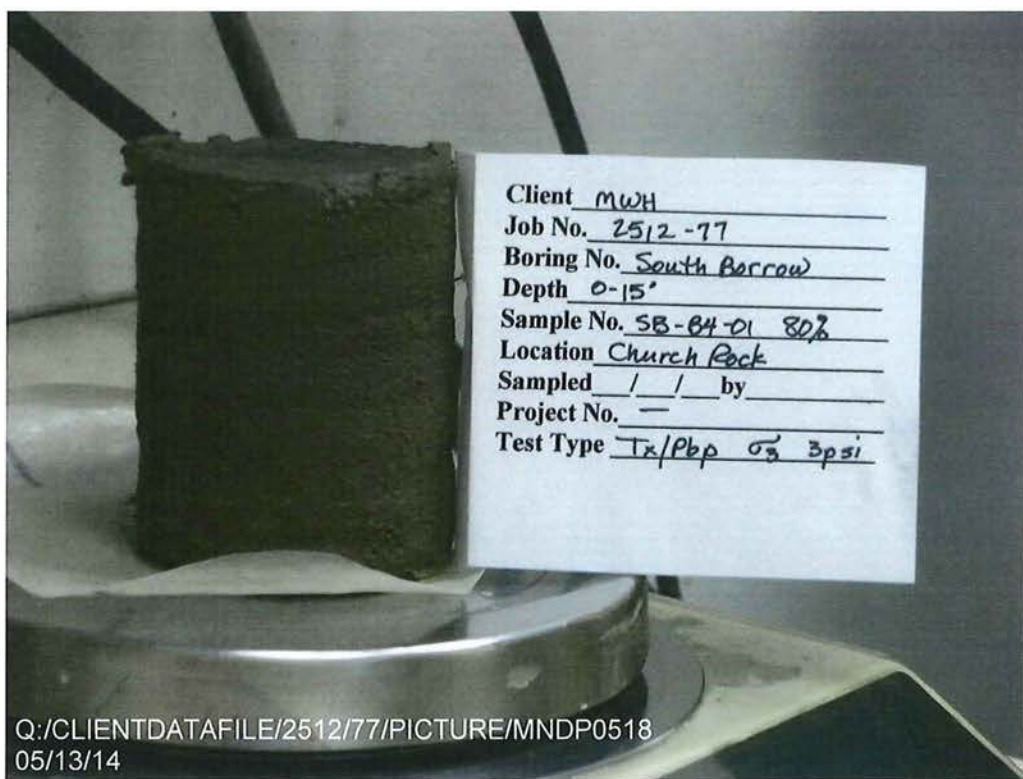 Client MWH
Job No. 2512-77
Boring No. South Borrow
Depth 0-15'
Sample No. SB-B4-01 80%
Location Church Rock
Sampled / / by
Project No. —
Test Type Tx/Pbp σ3 3psi
Q:/CLIENTDATAFILE/2512/77/PICTURE/MNDP0518
05/13/14